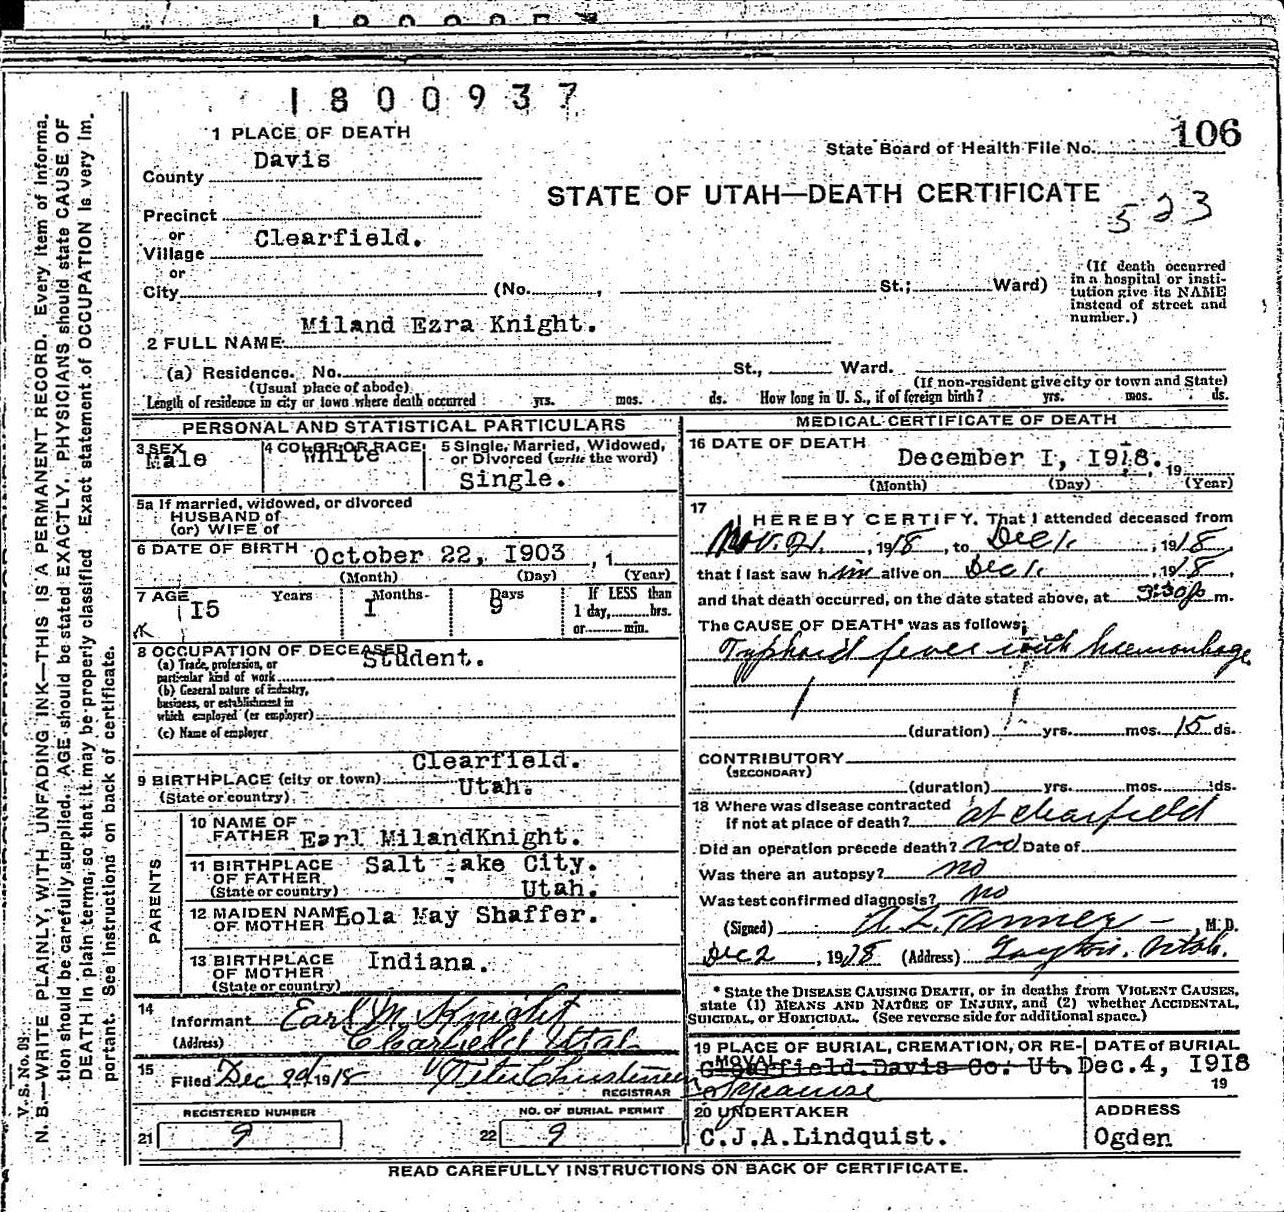 1800937
1 PLACE OF DEATH
State Board of Health File No. 106
County Davis
STATE OF UTAH—DEATH CERTIFICATE
523
Precinct
or
Village Clearfield.
or
City (No. , St.; Ward)
(If death occurred
in a hospital or insti-
tution give its NAME
instead of street and
number.)
2 FULL NAME Miland Ezra Knight.
(a) Residence. No. St., Ward.
(Usual place of abode)
(If non-resident give city or town and State)
Length of residence in city or town where death occurred yrs. mos. ds. How long in U. S., if of foreign birth? yrs. mos. ds.
PERSONAL AND STATISTICAL PARTICULARS
3 SEX Male
4 COLOR OR RACE White
5 Single, Married, Widowed,
or Divorced (write the word)
Single.
5a If married, widowed, or divorced
HUSBAND of
(or) WIFE of
6 DATE OF BIRTH October 22, I903 , 1
(Month) (Day) (Year)
7 AGE Years Months Days If LESS than
I5 I 9 1 day, hrs.
or min.
8 OCCUPATION OF DECEASED
Student.
(a) Trade, profession, or
particular kind of work
(b) General nature of industry,
business, or establishment in
which employed (or employer)
(c) Name of employer
Clearfield.
9 BIRTHPLACE (city or town)
Utah.
(State or country)
PARENTS
10 NAME OF
FATHER Earl MilandKnight.
11 BIRTHPLACE Salt Lake City.
OF FATHER
(State or country) Utah.
12 MAIDEN NAME Eola May Shaffer.
OF MOTHER
13 BIRTHPLACE Indiana.
OF MOTHER
(State or country)
14
Informant Earl M. Knight
(Address) Clearfield Utah
15
Filed Dec 2d 1918 Peter Christensen
REGISTRAR
REGISTERED NUMBER
21 9
NO. OF BURIAL PERMIT
22 9
MEDICAL CERTIFICATE OF DEATH
16 DATE OF DEATH
December I, I918. 19
(Month) (Day) (Year)
17
I HEREBY CERTIFY, That I attended deceased from
Nov. 21. , 1918 , to Dec 1. , 1918,
that I last saw him alive on Dec 1. , 1918,
and that death occurred, on the date stated above, at 9:30 p m.
The CAUSE OF DEATH* was as follows:
Typhoid fever with haemorrhage
(duration) yrs. mos. 15 ds.
CONTRIBUTORY
(SECONDARY)
(duration) yrs. mos. ds.
18 Where was disease contracted
if not at place of death? at Clearfield
Did an operation precede death? no Date of
Was there an autopsy? no
Was test confirmed diagnosis? no
(Signed) A. L. Tanner M. D.
Dec 2 , 1918 (Address) Layton, Utah.
* State the DISEASE CAUSING DEATH, or in deaths from VIOLENT CAUSES,
state (1) MEANS AND NATURE OF INJURY, and (2) whether ACCIDENTAL,
SUICIDAL, or HOMICIDAL. (See reverse side for additional space.)
19 PLACE OF BURIAL, CREMATION, OR RE-
MOVAL
Clearfield Davis Co. Ut.
Syracuse
DATE of BURIAL
Dec.4, I918
19
20 UNDERTAKER
C.J.A.Lindquist.
ADDRESS
Ogden
READ CAREFULLY INSTRUCTIONS ON BACK OF CERTIFICATE.
V. S. No. 03
N. B.—WRITE PLAINLY, WITH UNFADING INK—THIS IS A PERMANENT RECORD. Every item of informa-
tion should be carefully supplied. AGE should be stated EXACTLY. PHYSICIANS should state CAUSE OF
DEATH in plain terms, so that it may be properly classified. Exact statement of OCCUPATION is very im-
portant. See instructions on back of certificate.